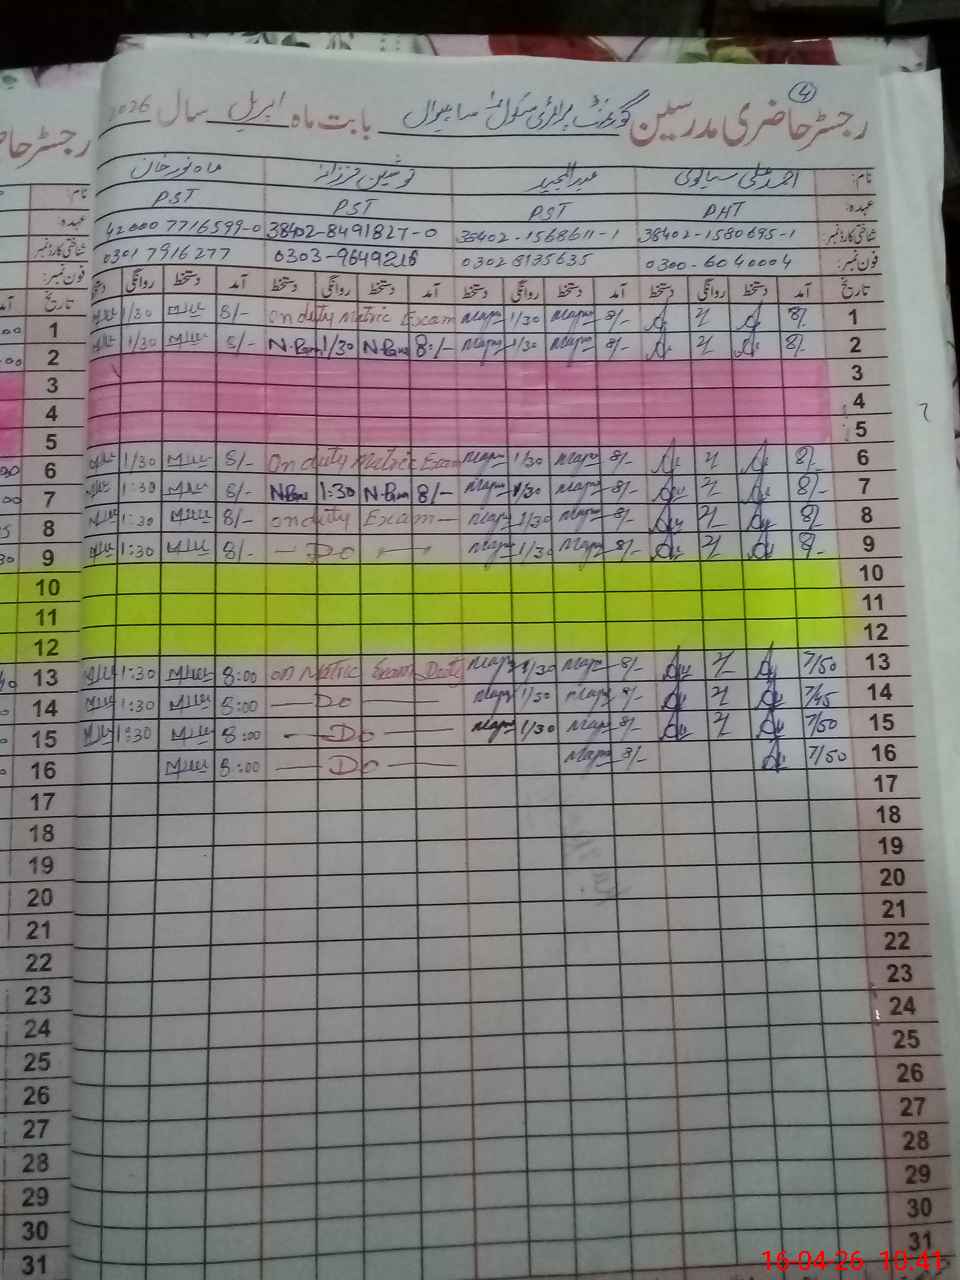 4
رجسٹر حاضری مدرسین گورنمنٹ پرائمری سکول ساہیوال بابت ماہ اپریل سال 2026
نام: احمد علی سیالوی عبدالمجید نوشین فرزانہ ماہ نور خان
عہدہ: PHT PST PST PST
شناختی کارڈ نمبر: 38402-1580695-1 38402-1568611-1 38402-8491827-0 42000 7716599-0
فون نمبر: 0300-6040004 03028135635 0303-9649216 0301 7916277
تاریخ آمد دستخط روانگی دستخط آمد دستخط روانگی دستخط آمد دستخط روانگی دستخط آمد دستخط روانگی دستخط تاریخ
1 8/- 8/- 1/30 On duty Matric Exam 8/- 1/30 1
2 8/- 8/- 1/30 8:/- N.Bano 1/30 N.Bano 8/- 1/30 2
3 3
4 4
5 5
6 8/- 8/- 1/30 On duty Matric Exam 8/- 1/30 6
7 8/- 8/- 1/30 8/- 1:30 8/- 1:30 7
8 8/- 8/- 1/30 On duty Exam 8/- 1:30 8
9 8/- 8/- 1/30 — Do — 8/- 1:30 9
10 10
11 11
12 12
13 7/50 8/- 1/30 on Matric Exam Duty 8:00 1:30 13
14 7/45 1/30 — Do — 8:00 1:30 14
15 7/50 8/- 1/30 — Do — 8:00 1:30 15
16 7/50 8/- — Do — 8:00 16
17 17
18 18
19 19
20 20
21 21
22 22
23 23
24 24
25 25
26 26
27 27
28 28
29 29
30 30
31 31
16-04-26 10:41